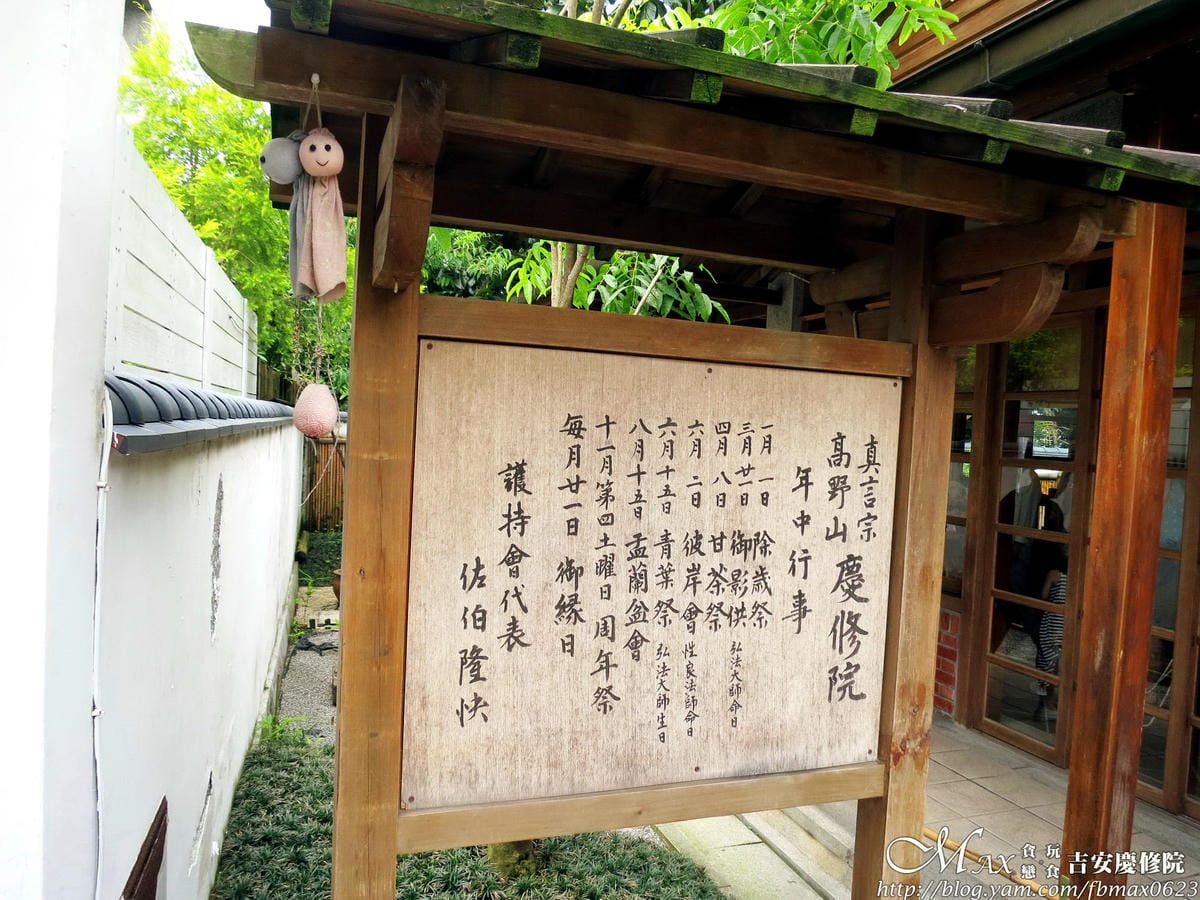 真言宗
高野山 慶修院
年中行事
一月一日 除歲祭
三月廿一日 御影供 弘法大師命日
四月八日 甘茶祭
六月二日 彼岸會 性良法師命日
六月十五日 青葉祭 弘法大師生日
八月十五日 盂蘭盆會
十一月第四土曜日 周年祭
每月廿一日 御縁日
護持會代表
佐伯隆快
Max 貪玩戀食 吉安慶修院
http://blog.yam.com/fbmax0623